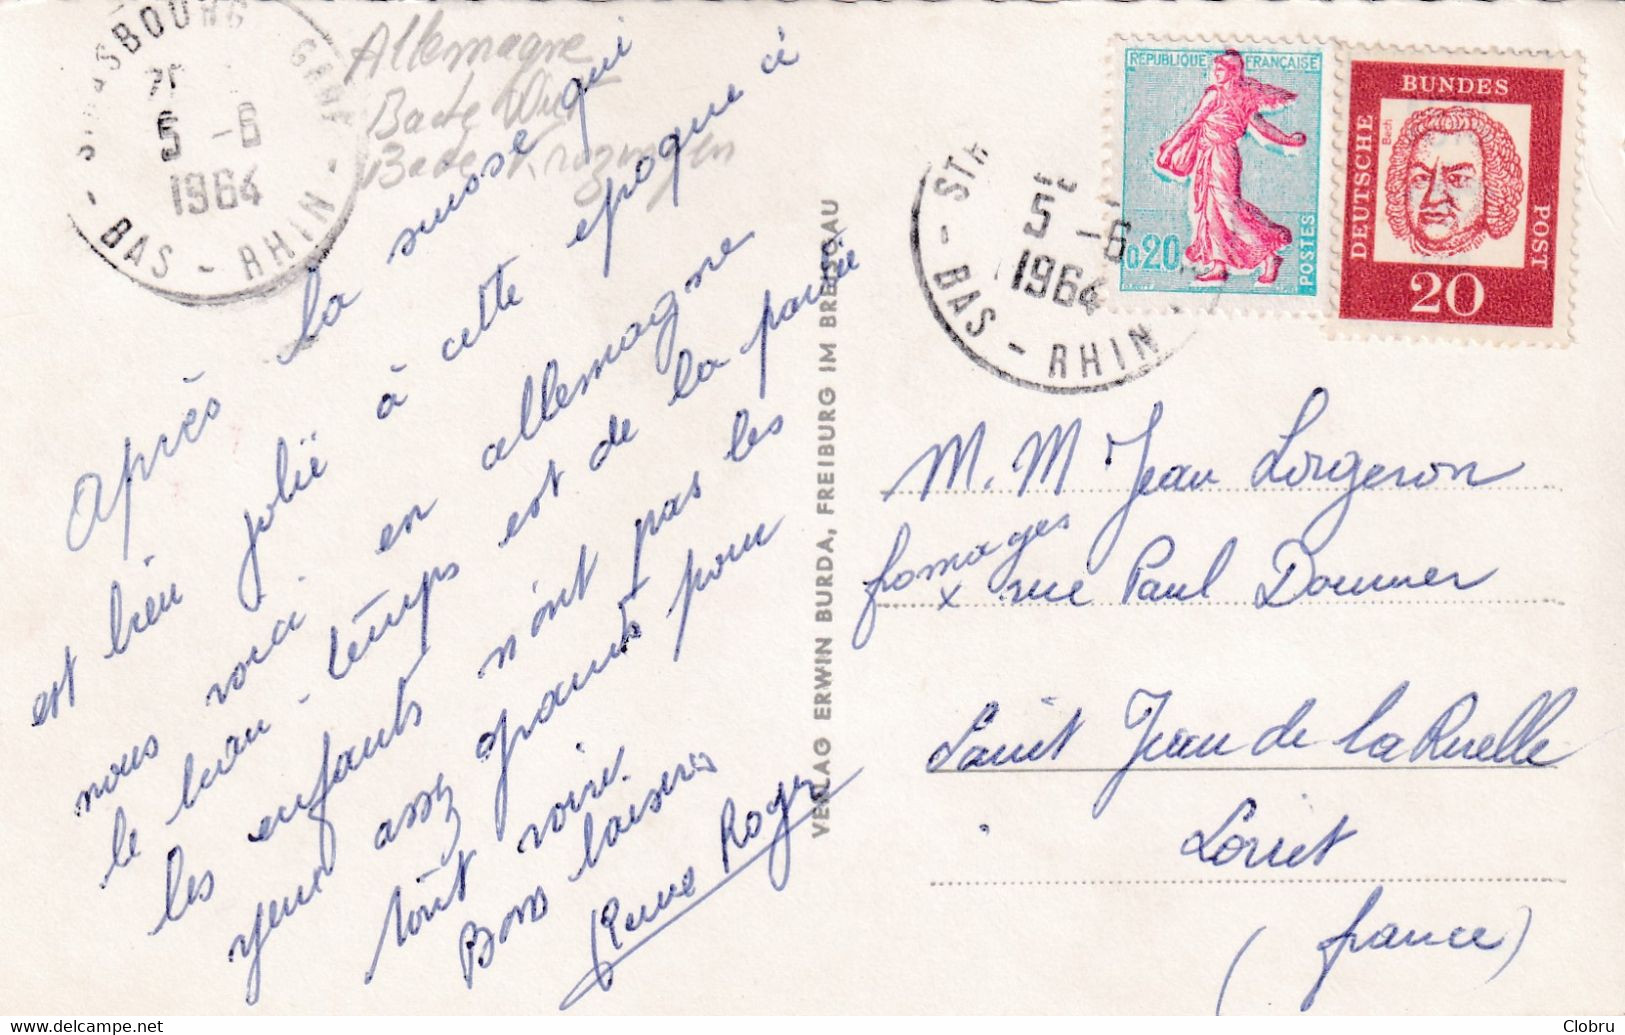 STRASBOURG GARE
5 - 6
1964
- BAS - RHIN -
Allemagne
Bade Wurt
Bade Krozingen
Après la suisse qui
est bien jolie à cette epoque ci
nous voici en allemagne
le beau-temps est de la partie
les enfants n'ont pas les
yeux assez grands pour
tout voire.
Bons baisers
Roger
VERLAG ERWIN BURDA, FREIBURG IM BREISGAU
STR
5 - 6
1964
- BAS - RHIN
REPUBLIQUE FRANÇAISE
0,20
POSTES
DEUTSCHE BUNDES POST
Bach
20
M. M Jean Lorgeron
fromages
x rue Paul Doumer
Saint Jean de la Ruelle
Loiret
(france)
Clobru